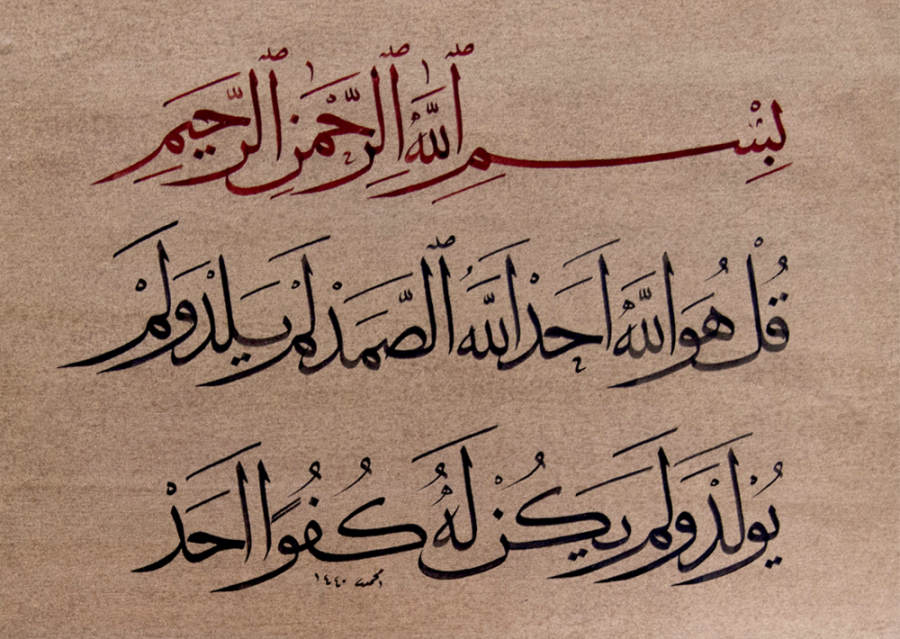 بِسْمِ ٱللّٰهِ ٱلرَّحْمٰنِ ٱلرَّحِيمِ
قُلْ هُوَ اللّٰهُ اَحَدْ اَللّٰهُ ٱلصَّمَدْ لَمْ يَلِدْ وَلَمْ
يُولَدْ وَلَمْ يَكُنْ لَهُ كُفُوًا اَحَدْ
١٤٤٠